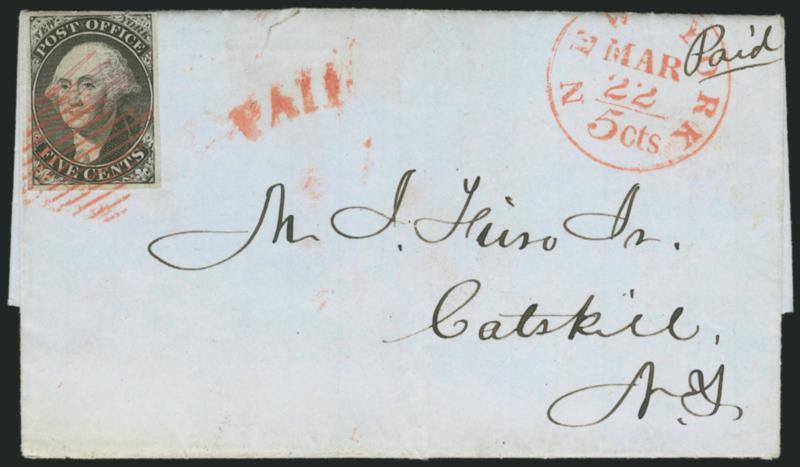 POST OFFICE
FIVE CENTS
PAID
NEW YORK
MAR
22
5 cts
Paid
M. J.
Catskill,
N.Y.